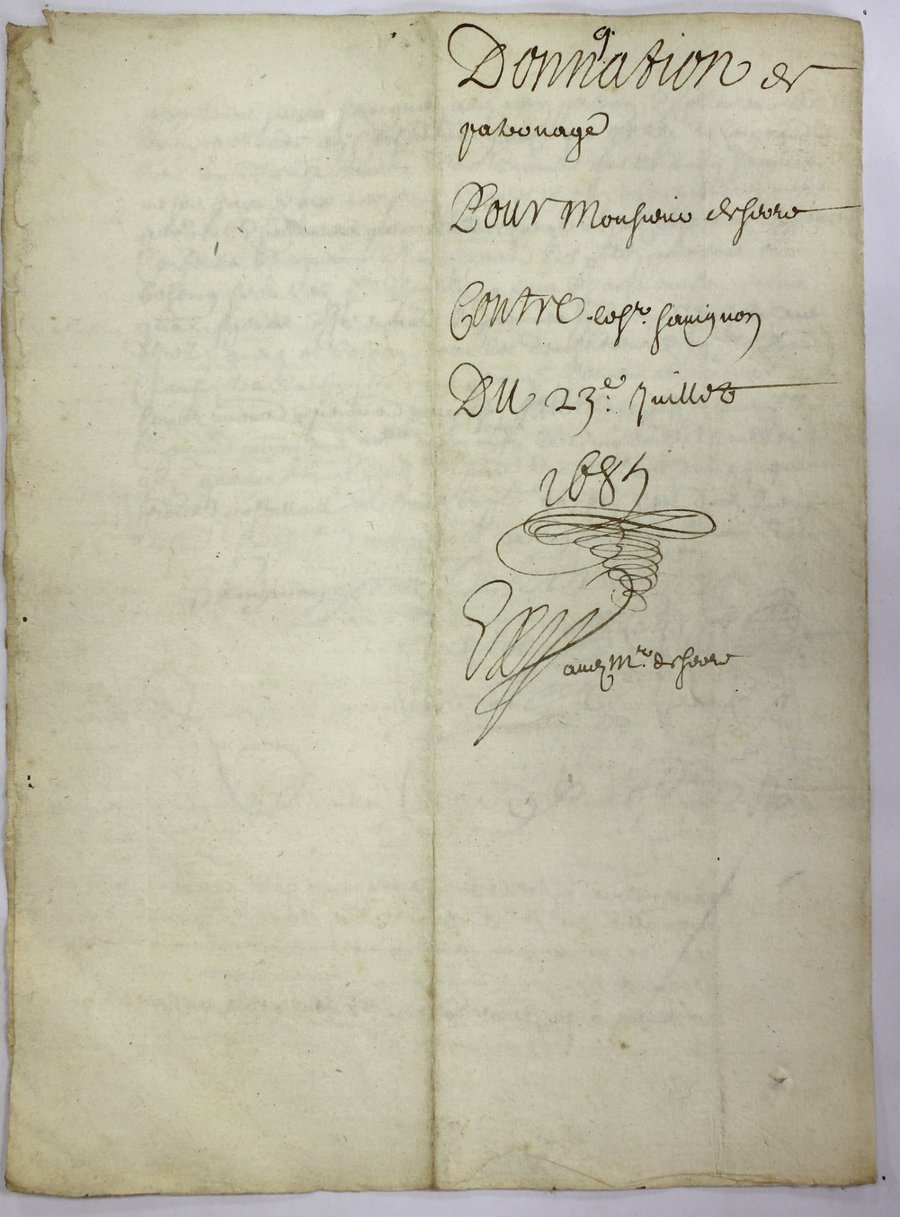 Donnation de
patronage
Pour Monsieur deserre
Contre le sr. sauignon
Du 23e. Juillet
1687
auec Mre. deserre